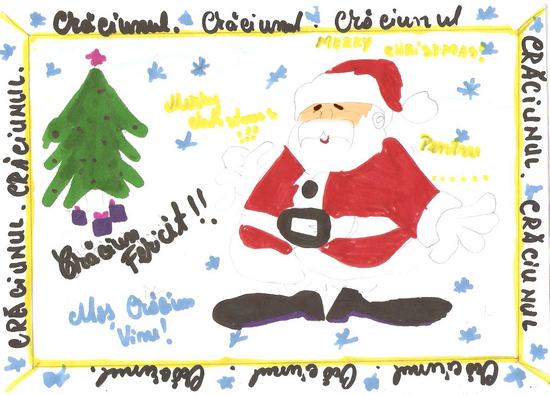 Crăciunul. Crăciunul. Crăciunul
MERRY CHRISTMAS!
Merry
christmas
!!!
Pentru
.......
Crăciun
Fericit!!
Moș Crăciun
Vine!
CRĂCIUNUL. CRĂCIUNUL.
CRĂCIUNUL. CRĂCIUNUL
Crăciunul. Crăciunul. Crăciunul. Crăciunul.